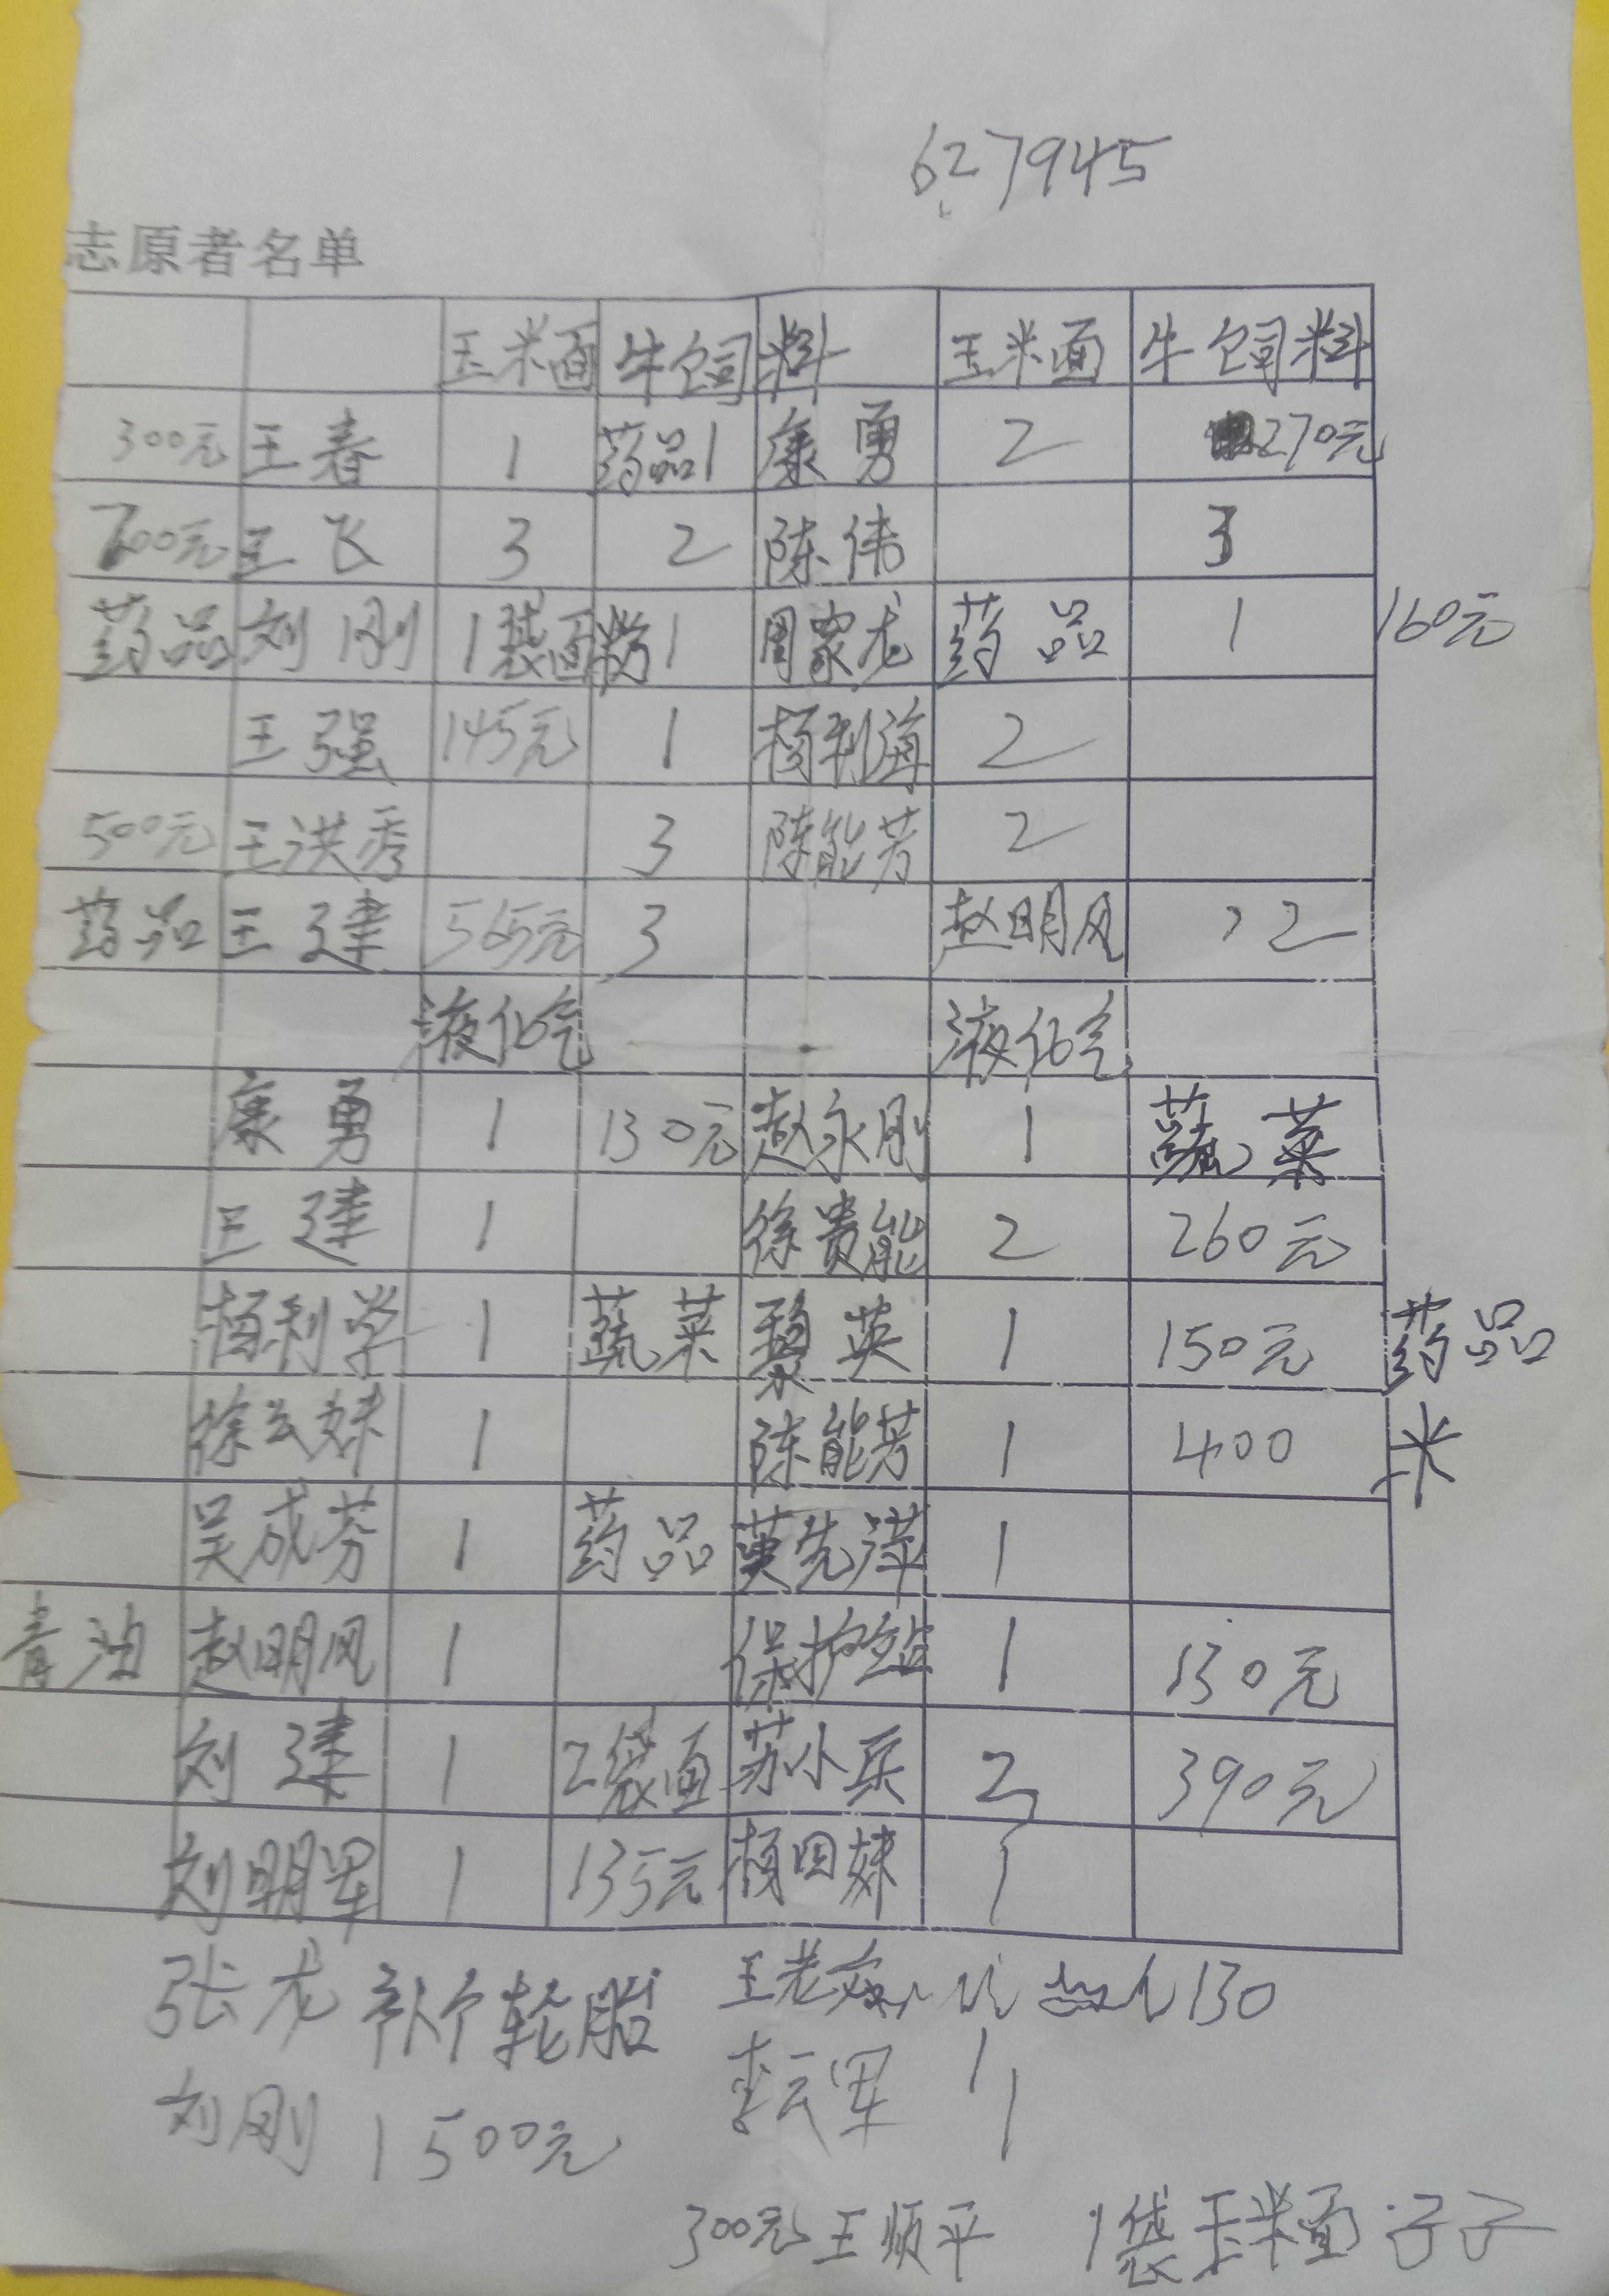 627945
志原者名单
玉米面 牛饲料 玉米面 牛饲料
300元 王春 1 药品1 康勇 2 270元
700元 王飞 3 2 陈伟 3
药品 刘刚 1袋面粉1 周家龙 药品 1 160元
王强 145元 1 杨利海 2
500元 王洪秀 3 陈能芳 2
药品 王建 565元 3 赵明风 2
液化气 液化气
康勇 1 130元 赵永刚 1 蔬菜
王建 1 徐贵能 2 260元
杨利学 1 蔬菜 黎英 1 150元 药品
徐云妹 1 陈能芳 1 400 米
吴成芬 1 药品 莫先洋 1
青油 赵明风 1 保护站 1 130元
刘建 1 2袋面 苏小兵 2 390元
刘明军 1 135元 杨四妹 1
张龙 补个轮胎 王老 130
李云军 1 1
刘刚 1 500元
300元 王顺平 1袋玉米面 子子